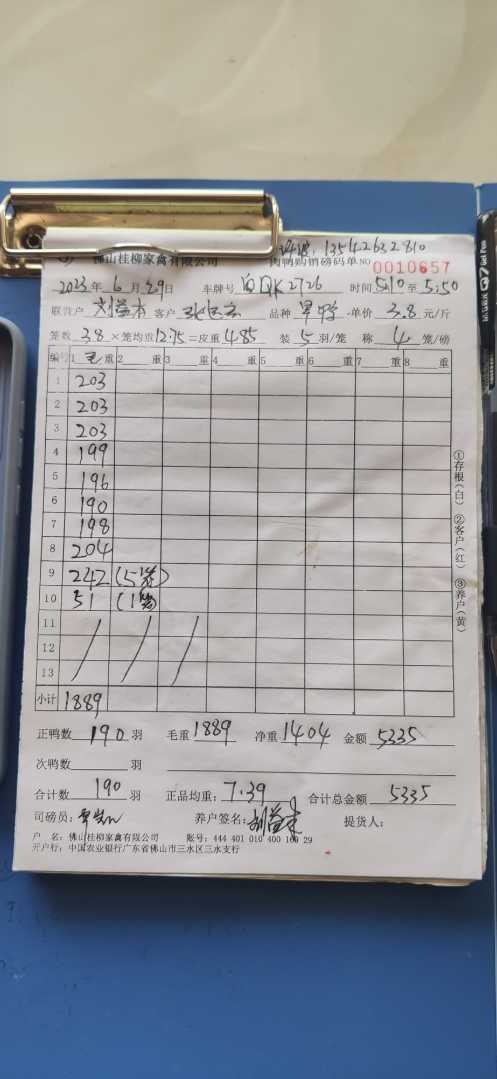 13542632810
佛山桂柳家禽有限公司 肉鸭购销磅码单 NO 0010657
2023年 6 月 29日 车牌号 QK2726 时间 5:10 至 5:50
联营户 客户 品种 单价 3.8 元/斤
笼数 38 ×笼均重 12.75 =皮重 485 装 5 羽/笼 称 4 笼/磅
编号 1 毛 重 2 重 3 重 4 重 5 重 6 重 7 重 8 重
1 203
2 203
3 203
4 199
5 196
6 190
7 198
8 204
9 242 (5笼)
10 51 (1笼)
11
12
13
小计 1889
①存根(白) ②客户(红) ③养户(黄)
正鸭数 190 羽 毛重 1889 净重 1404 金额 5335
次鸭数 羽
合计数 190 羽 正品均重: 7.39 合计总金额 5335
司磅员: 养户签名: 提货人:
户 名: 佛山桂柳家禽有限公司 账号: 444 401 010 400 169 29
开户行: 中国农业银行广东省佛山市三水区三水支行